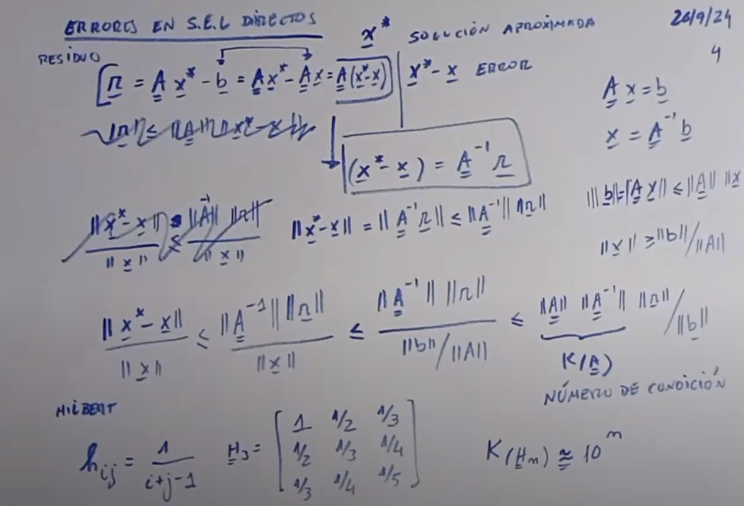 ERRORES EN S.E.L DIRECTOS
20/9/24
4
x* SOLUCIÓN APROXIMADA
RESIDUO
r = A x* - b = A x* - A x = A (x* - x)
x* - x ERROR
A x = b
x = A⁻¹ b
(x* - x) = A⁻¹ r
||x* - x|| / ||x|| ≤ ||A⁻¹|| ||r|| / ||x||
||x* - x|| = ||A⁻¹ r|| ≤ ||A⁻¹|| ||r||
||b|| = ||A x|| ≤ ||A|| ||x
||x|| ≥ ||b|| / ||A||
||x* - x|| / ||x|| ≤ ||A⁻¹|| ||r|| / ||x|| ≤ ||A⁻¹|| ||r|| / ||b|| / ||A|| ≤ ||A|| ||A⁻¹|| ||r|| / ||b||
K(A)
NÚMERO DE CONDICIÓN
HILBERT
h ij = 1 / i+j-1
H₃ = [ 1 1/2 1/3
1/2 1/3 1/4
1/3 1/4 1/5 ]
K(Hn) ≈ 10ⁿ